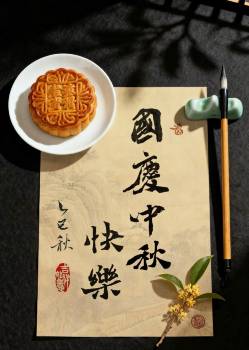 國慶中秋
快樂
乙巳秋